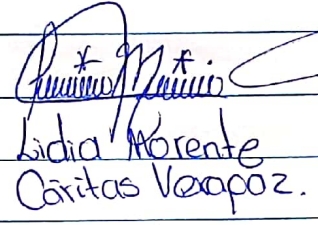 Lidia Morente
Cáritas Verapaz.